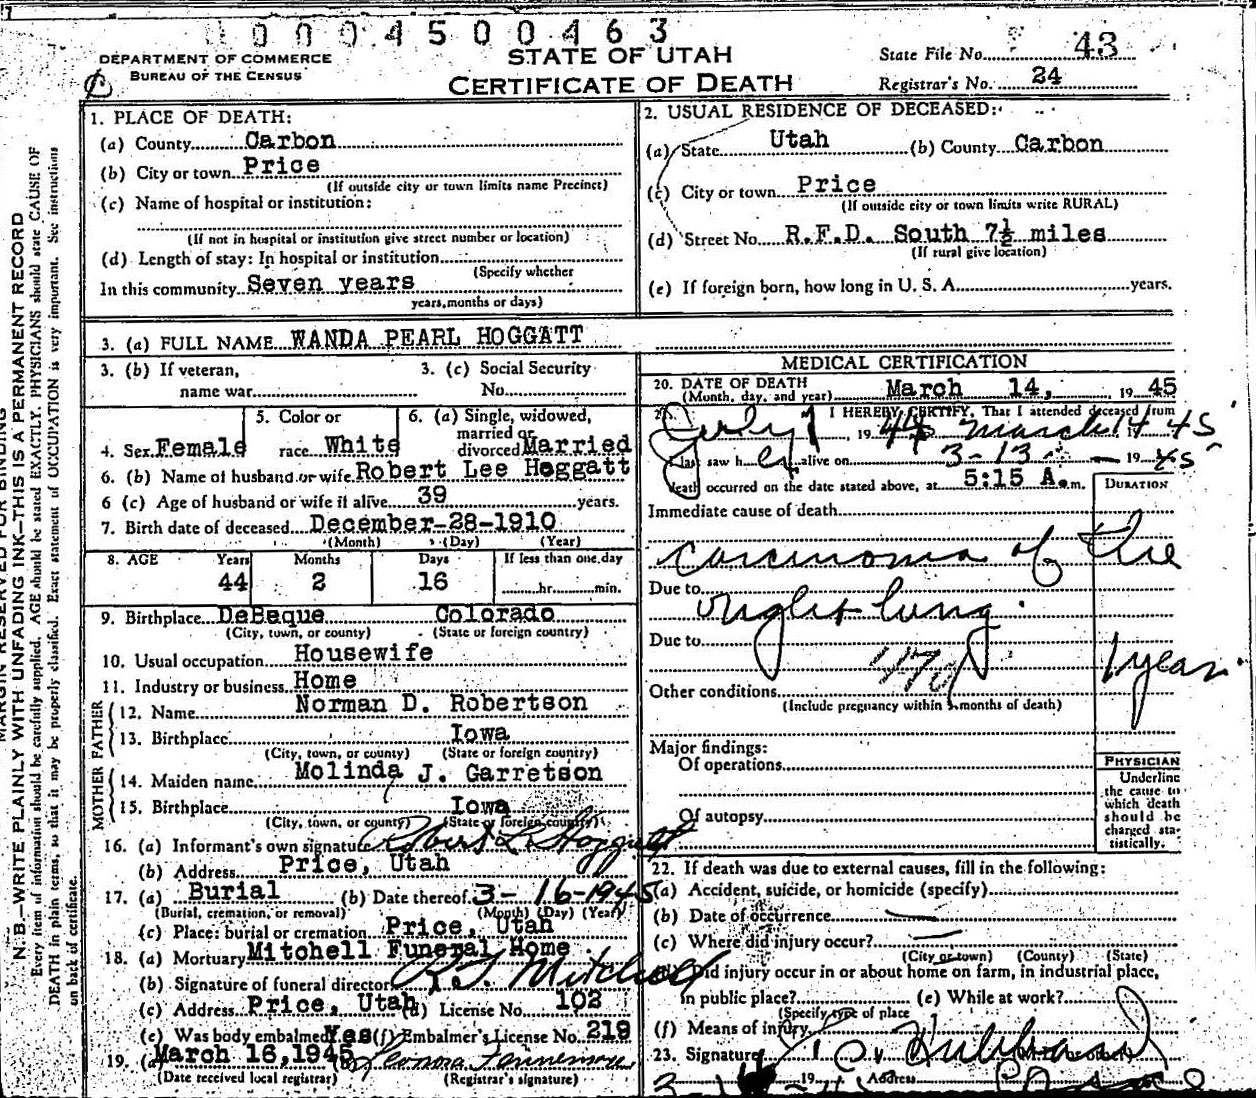 0004500463
DEPARTMENT OF COMMERCE
BUREAU OF THE CENSUS
STATE OF UTAH
CERTIFICATE OF DEATH
State File No. 43
Registrar's No. 24
MARGIN RESERVED FOR BINDING
N. B.—WRITE PLAINLY WITH UNFADING INK—THIS IS A PERMANENT RECORD
Every item of information should be carefully supplied. AGE should be stated EXACTLY. PHYSICIANS should state CAUSE OF
DEATH in plain terms, so that it may be properly classified. Exact statement of OCCUPATION is very important. See instructions
on back of certificate.
1. PLACE OF DEATH:
(a) County Carbon
(b) City or town Price
(If outside city or town limits name Precinct)
(c) Name of hospital or institution:
(If not in hospital or institution give street number or location)
(d) Length of stay: In hospital or institution
(Specify whether
In this community Seven years
years, months or days)
2. USUAL RESIDENCE OF DECEASED:
(a) State Utah (b) County Carbon
(c) City or town Price
(If outside city or town limits write RURAL)
(d) Street No. R.F.D. South 7½ miles
(If rural give location)
(e) If foreign born, how long in U. S. A. years.
3. (a) FULL NAME WANDA PEARL HOGGATT
3. (b) If veteran,
name war
3. (c) Social Security
No.
4. Sex Female
5. Color or
race White
6. (a) Single, widowed,
married or
divorced Married
6. (b) Name of husband or wife Robert Lee Hoggatt
6 (c) Age of husband or wife if alive 39 years.
7. Birth date of deceased December-28-1910
(Month) (Day) (Year)
8. AGE Years Months Days If less than one day
44 2 16 hr. min.
9. Birthplace DeBeque Colorado
(City, town, or county) (State or foreign country)
10. Usual occupation Housewife
11. Industry or business Home
FATHER
12. Name Norman D. Robertson
13. Birthplace Iowa
(City, town, or county) (State or foreign country)
MOTHER
14. Maiden name Molinda J. Garretson
15. Birthplace Iowa
(City, town, or county) (State or foreign country)
16. (a) Informant's own signature Robert L. Hoggatt
(b) Address Price, Utah
17. (a) Burial (b) Date thereof 3-16-1945
(Burial, cremation, or removal) (Month) (Day) (Year)
(c) Place: burial or cremation Price, Utah
18. (a) Mortuary Mitchell Funeral Home
(b) Signature of funeral director Mitchell
(c) Address Price, Utah (d) License No. 102
(e) Was body embalmed Yes (f) Embalmer's License No. 219
19. (a) March 16, 1945 (b)
(Date received local registrar) (Registrar's signature)
MEDICAL CERTIFICATION
20. DATE OF DEATH
(Month, day, and year) March 14, 1945
21. I HEREBY CERTIFY, That I attended deceased from
July 1, 1944 March 14 1945
I last saw her alive on 3-13- 1945
death occurred on the date stated above, at 5:15 A. m.
DURATION
Immediate cause of death
carcinoma of the
Due to right lung.
Due to
1 year.
Other conditions
(Include pregnancy within 3 months of death)
Major findings:
Of operations
Of autopsy
PHYSICIAN
Underline
the cause to
which death
should be
charged sta-
tistically.
22. If death was due to external causes, fill in the following:
(a) Accident, suicide, or homicide (specify)
(b) Date of occurrence
(c) Where did injury occur?
(City or town) (County) (State)
(d) Did injury occur in or about home on farm, in industrial place,
in public place? (e) While at work?
(Specify type of place
(f) Means of injury
23. Signature Hubbard
19 Address